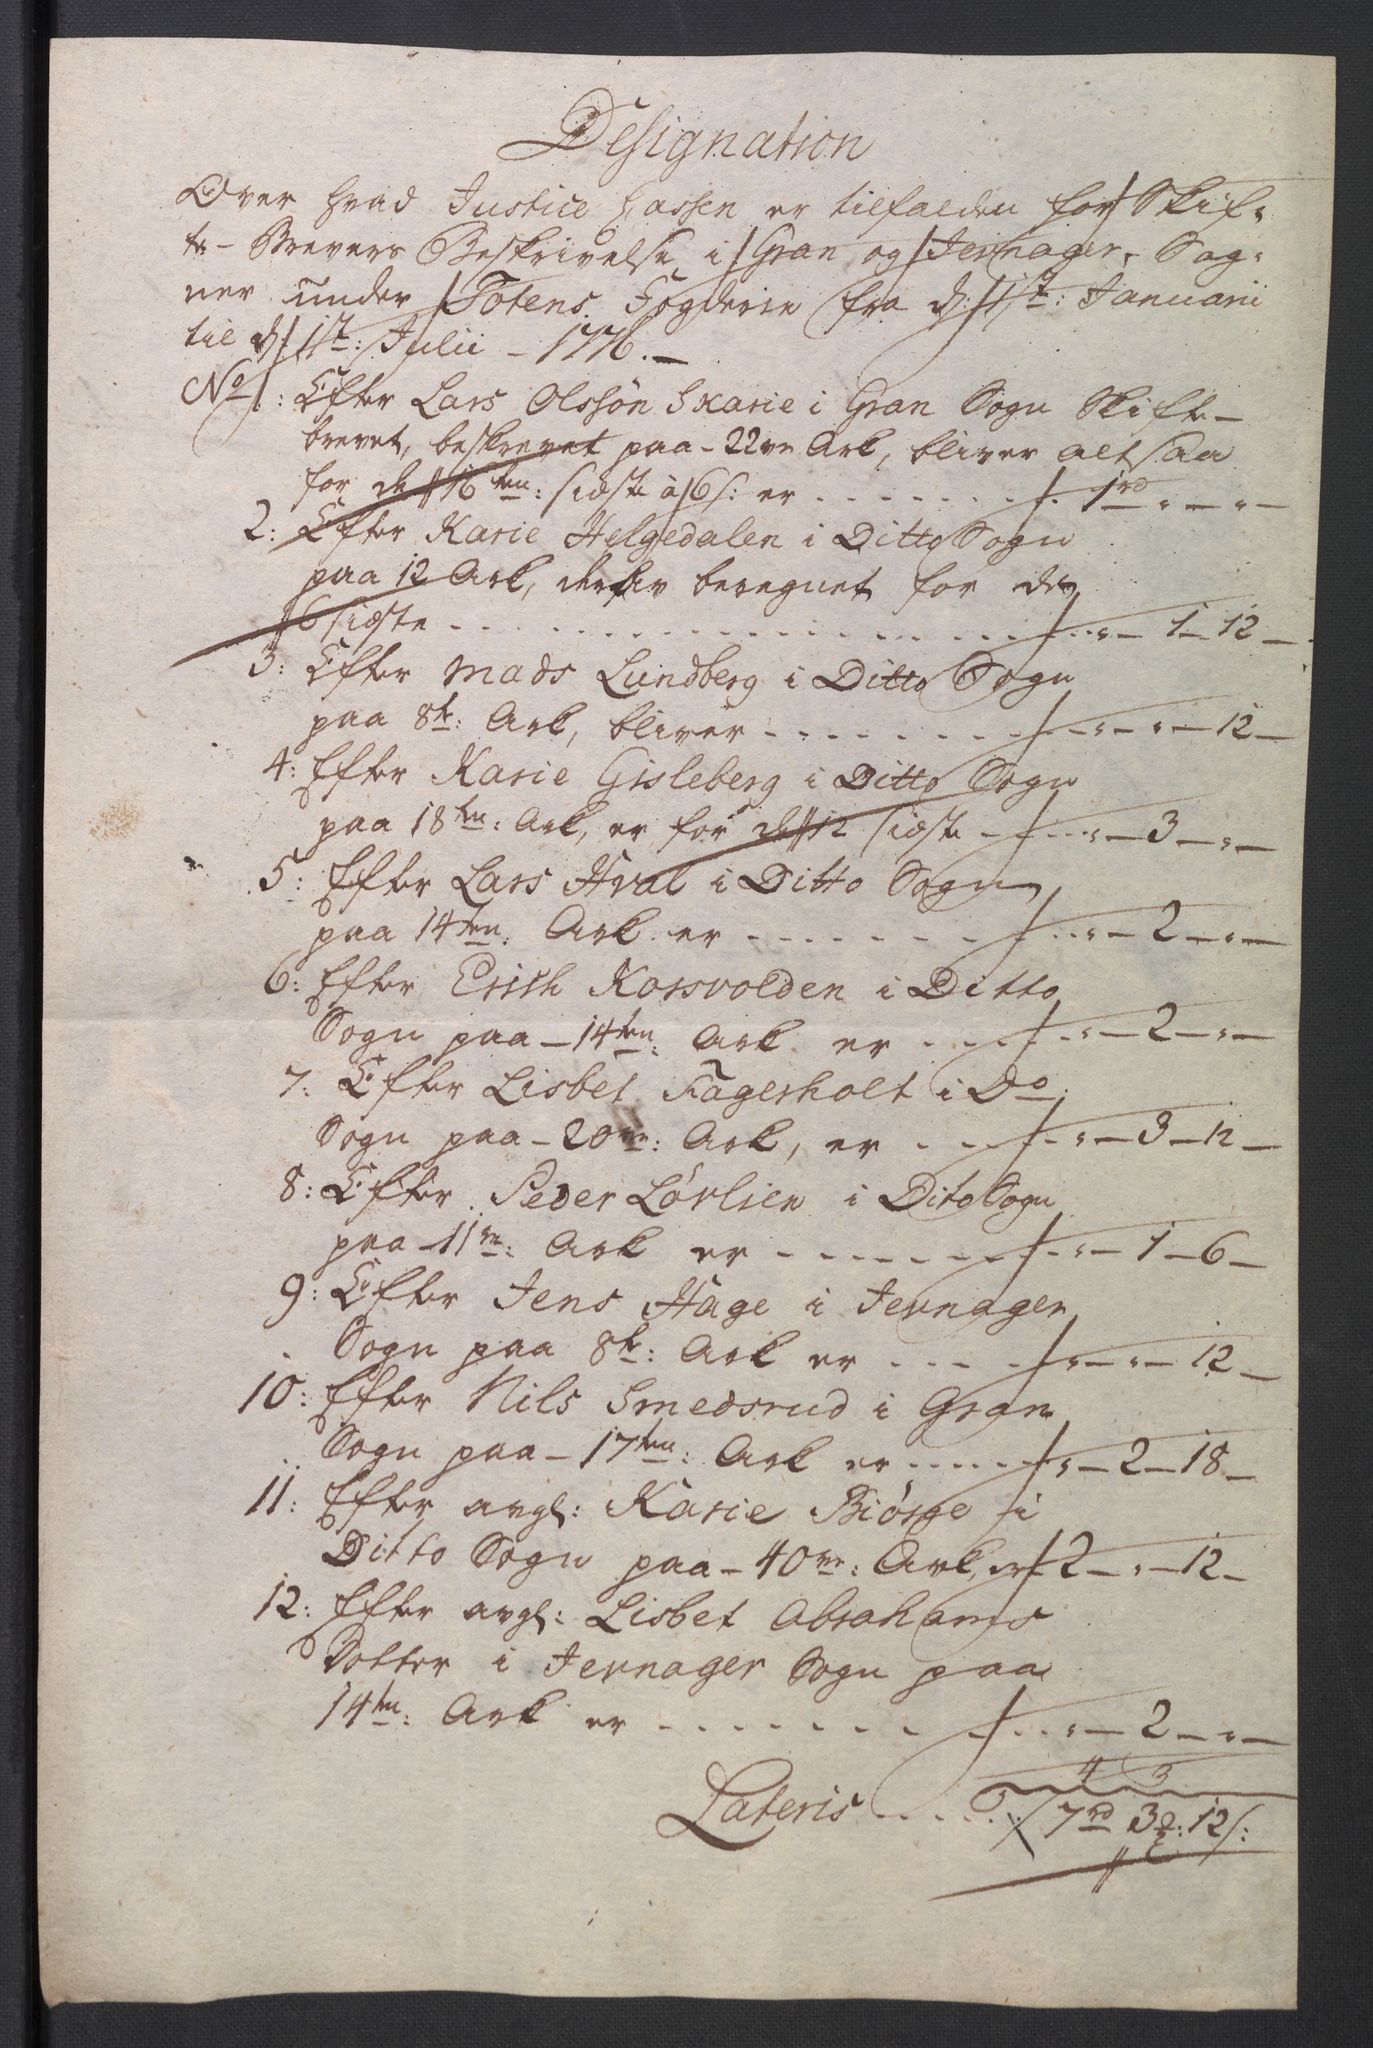 Designation
Over hvad Justice Cassen er tilfalden for Skif-
te-Brevers Beskrivelse i Gran og Jevnager Sog-
ner under Totens Fogderie fra d: 1st: Januarii
til d: 1st: Julii - 1776. -
No 1: Efter Lars Olssön Skarie i Gran Sogn Skifte-
brevet, beskrevet paa - 22ve Ark, bliver altsaa
for de 16ten: sidste à 6 s: er . . . . . . . 1rd „ — „ —
2: Efter Karie Helgedalen i Ditto Sogn
paa 12 Ark, derfor beregnet for de
6 sidste . . . . . . . . „ — 1 — 12 —
3: Efter Mads Lundberg i Ditto Sogn
paa 8te: Ark, bliver . . . . . . . „ — „ — 12 —
4: Efter Karie Gisleberg i Ditto Sogn
paa 18ten: Ark, er for de 12 sidste . . . „ — 3 — „ —
5: Efter Lars Hval i Ditto Sogn
paa 14ten: Ark er . . . . . . . „ — 2 — „ —
6: Efter Erich Korsvolden i Ditto
Sogn paa - 14ten: Ark er . . . „ — 2 — „ —
7: Efter Lisbet Fagerholt i Do
Sogn paa - 20ve: Ark, er . . . „ — 3 — 12 —
8: Efter Peder Lövlien i Dito Sogn
paa - 11ve: Ark er . . . . . . . „ — 1 — 6 —
9: Efter Jens Hage i Jevnager
Sogn paa 8te: Ark er . . . . „ — „ — 12 —
10: Efter Nils Smedsrud i Gran
Sogn paa - 17ten: Ark er . . . . . „ — 2 — 18 —
11: Efter avgl: Karie Biörge i
Ditto Sogn paa - 40ve: Ark, er 2 — „ — 12 —
12: Efter avgl: Lisbet Abrahams
Dotter i Jevnager Sogn paa
14ten: Ark er . . . . . . . „ — 2 — „ —
4 3
Lateris . . . . . 7rd 3: 12 s: